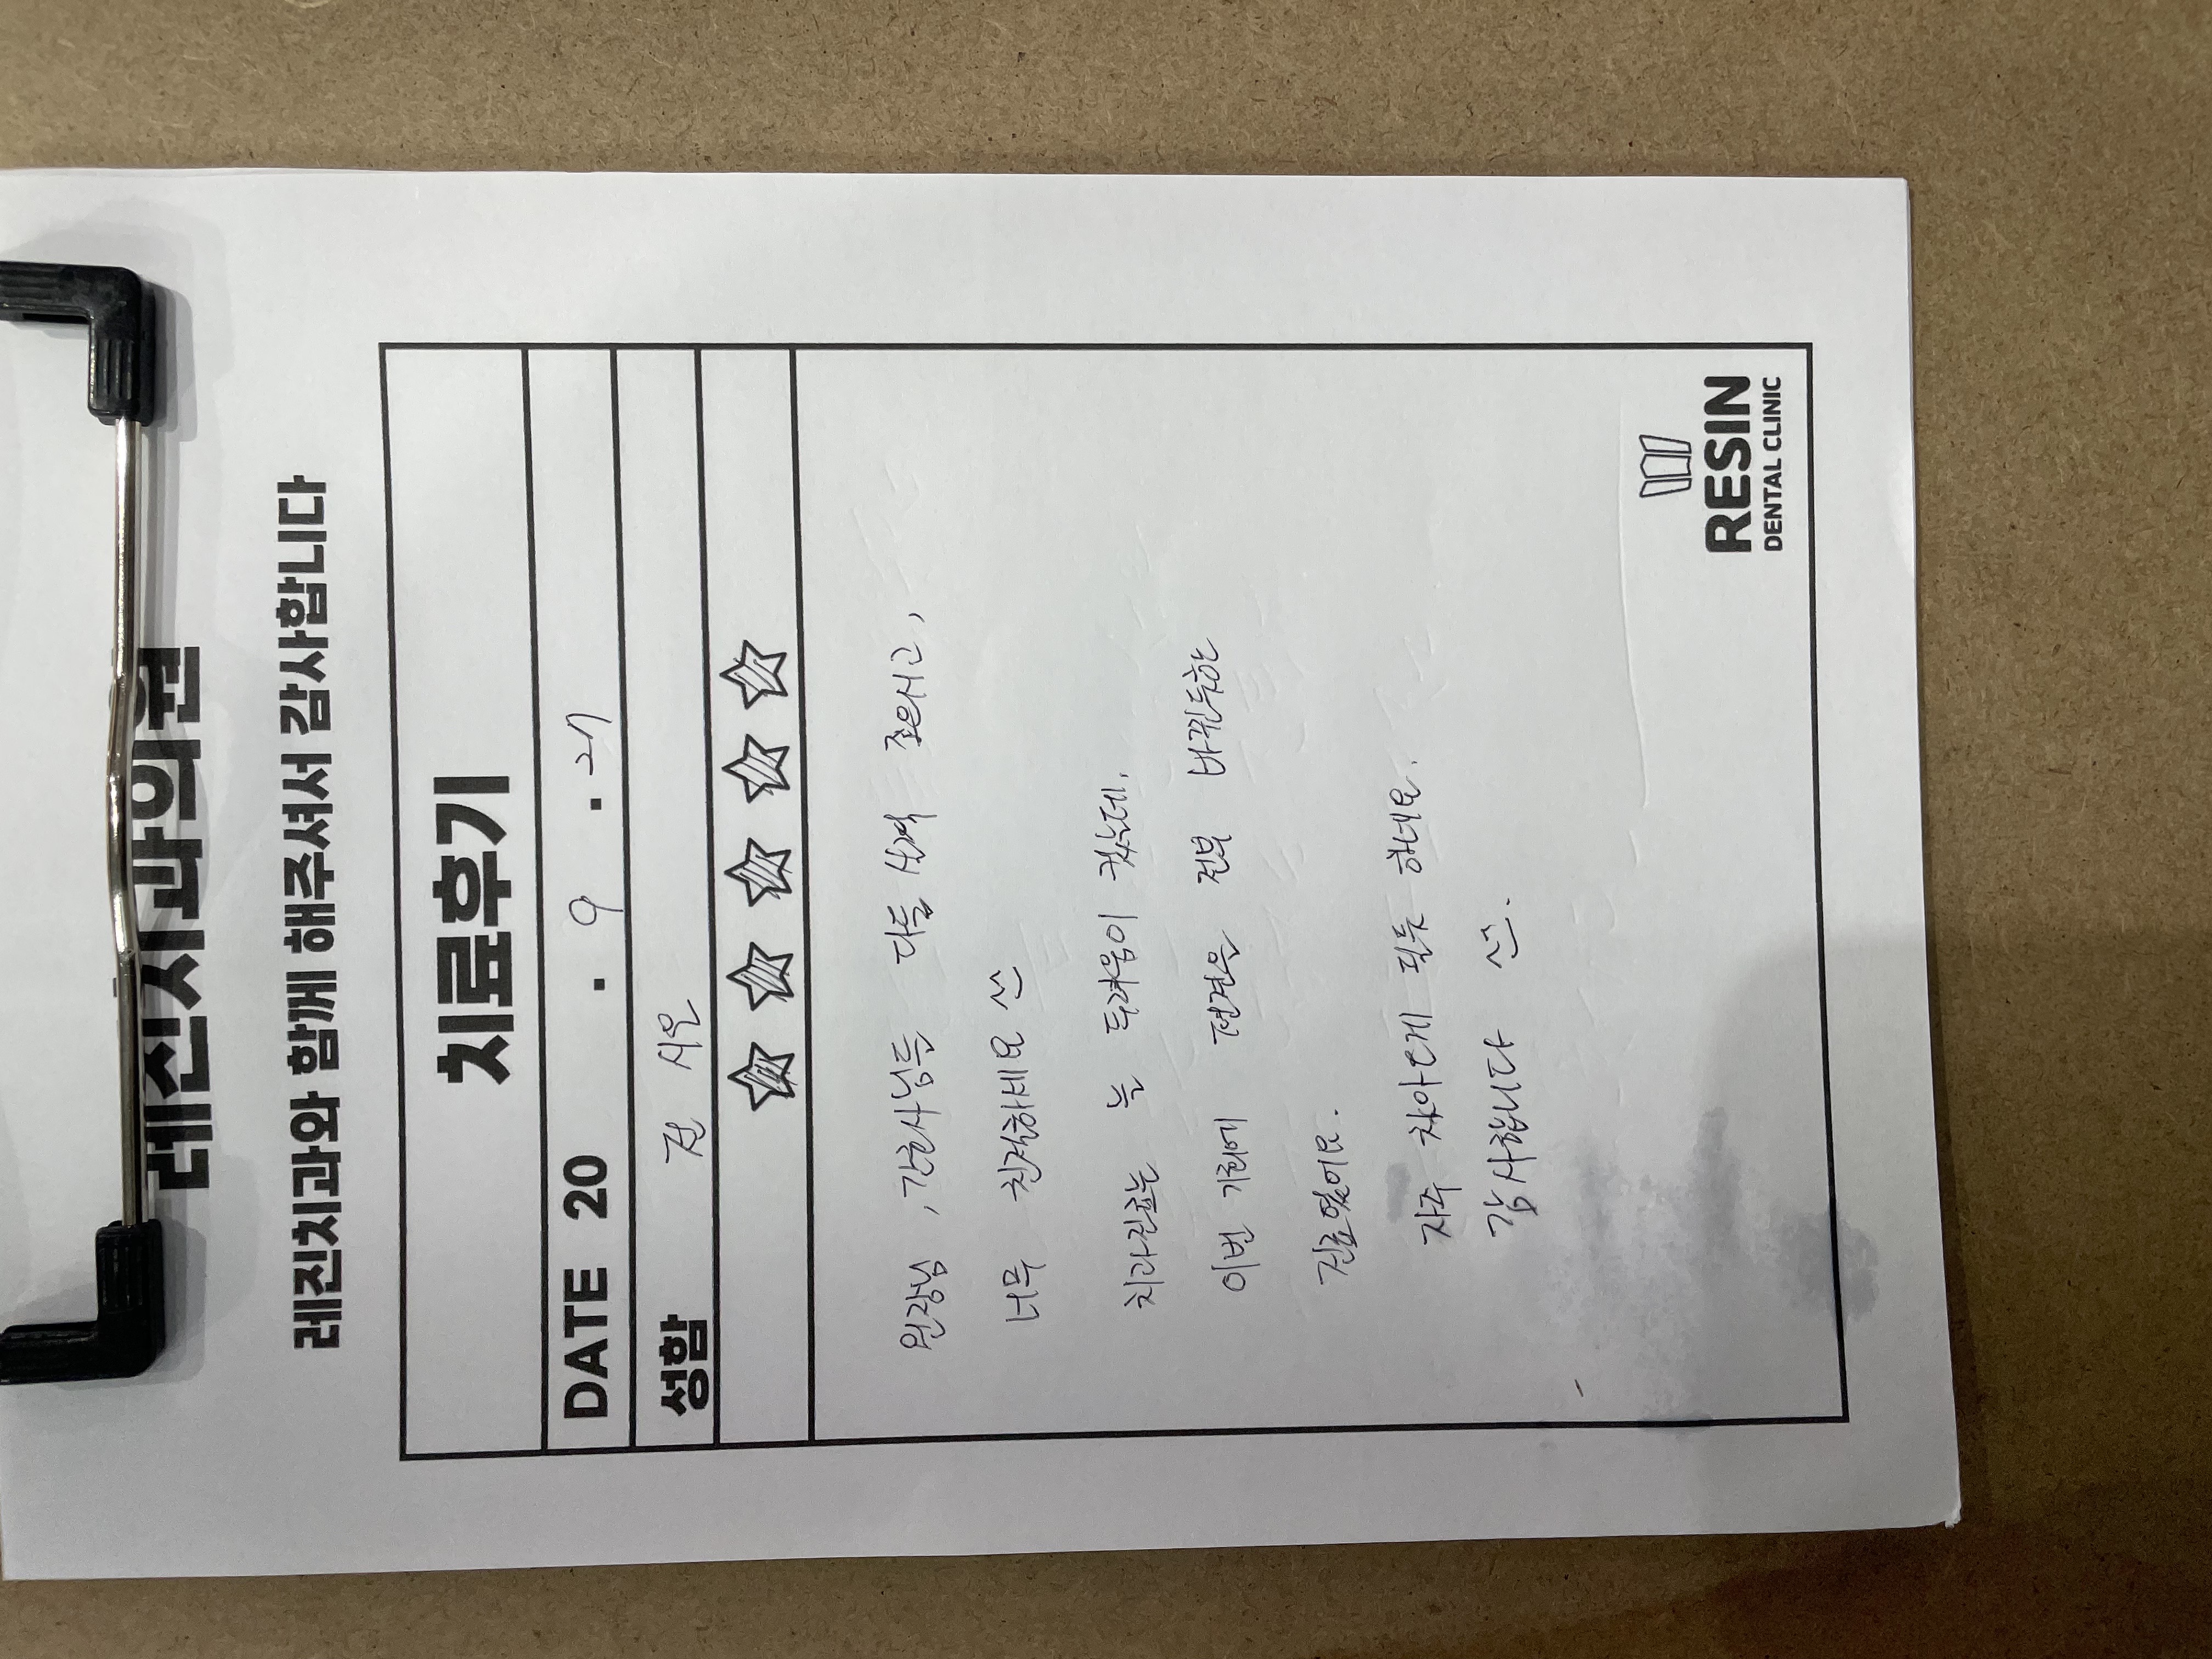 레진치과의원
레진치과와 함께 해주셔서 감사합니다
치료후기
DATE 20 . 9 . 27
성함 전 시은
원장님, 간호사님들 다들 성격 좋으시고,
너무 친절하세요 ^^
치과진료는 늘 두려움이 컸는데,
이번 기회에 편견은 전부 바뀐듯한
진료였어요.
자주 찾아오게 될듯 하네요.
감사합니다 ^^.
RESIN
DENTAL CLINIC